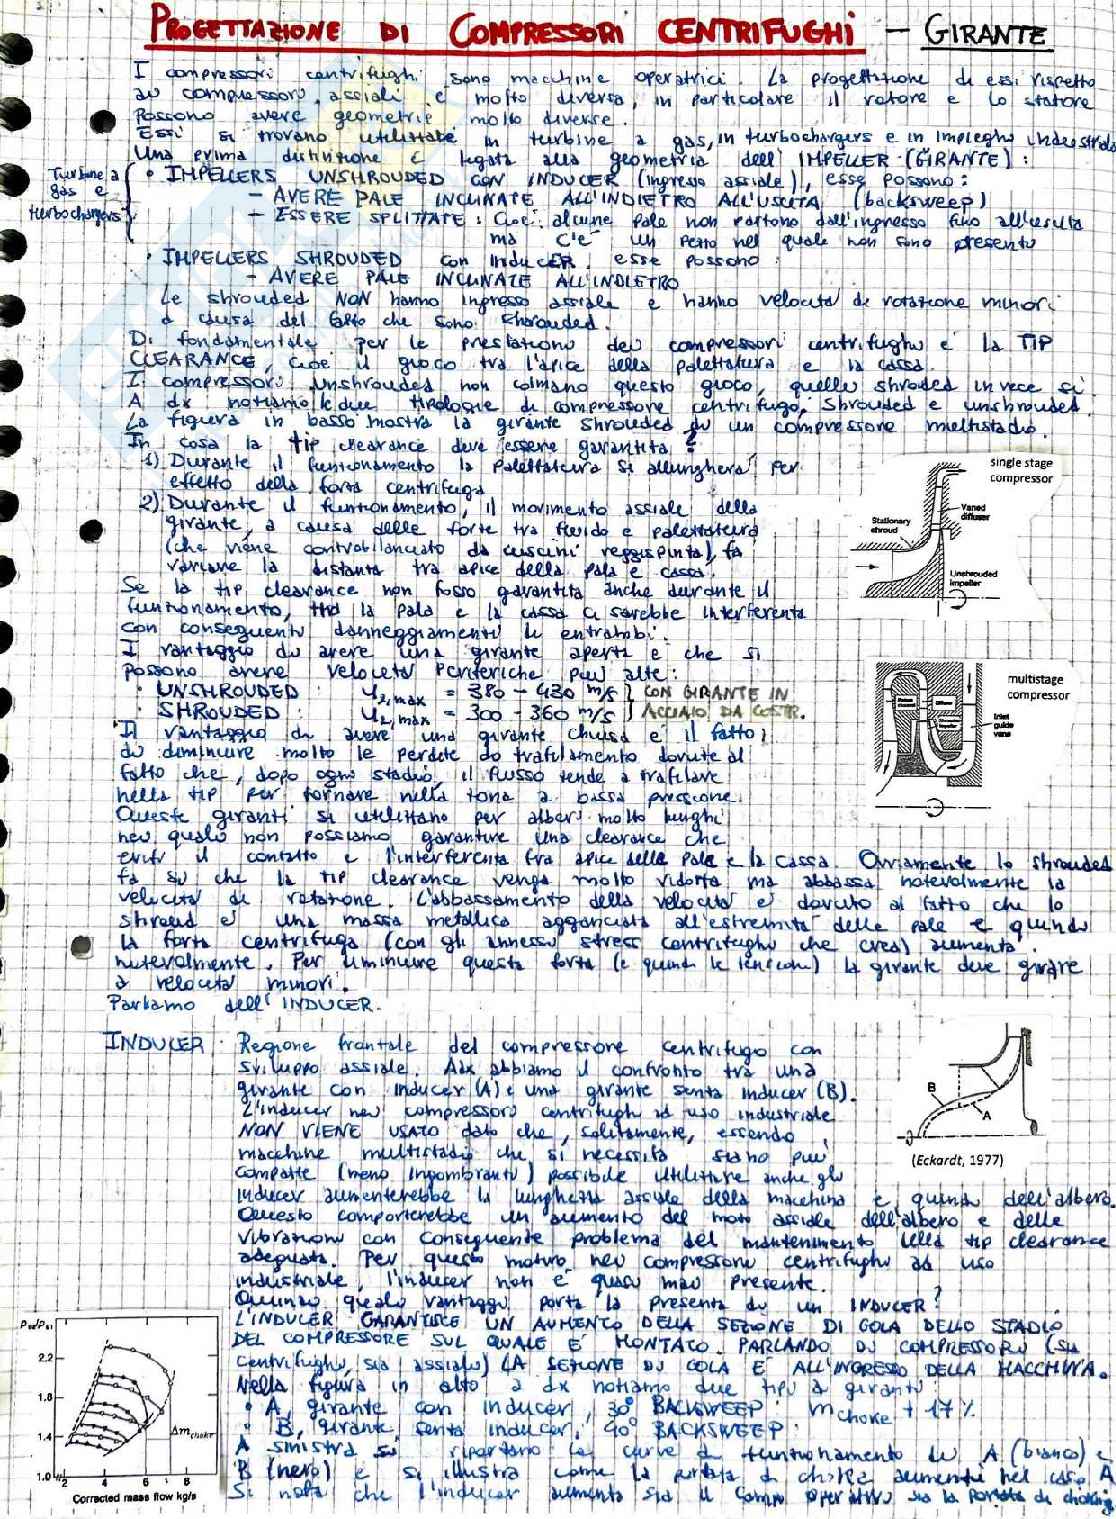 PROGETTAZIONE DI COMPRESSORI CENTRIFUGHI – GIRANTE
I compressori centrifughi sono macchine operatrici. La progettazione di essi rispetto
ai compressori assiali è molto diversa, in particolare il rotore e lo statore
possono avere geometrie molto diverse.
Essi si trovano utilizzate in turbine a gas, in turbochargers e in impieghi industriali
Una prima distinzione è legata alla geometria dell'IMPELLER (GIRANTE):
Turbine a gas e turbochargers
• IMPELLERS UNSHROUDED CON INDUCER (ingresso assiale), esse possono:
– AVERE PALE INCLINATE ALL'INDIETRO ALL'USCITA (backsweep)
– ESSERE SPLITTATE: cioè alcune pale non partono dall'ingresso fino all'uscita
ma c'è un pezzo nel quale non sono presenti
• IMPELLERS SHROUDED con INDUCER, esse possono:
– AVERE PALE INCLINATE ALL'INDIETRO
Le shrouded NON hanno ingresso assiale e hanno velocità di rotazione minori
a causa del fatto che sono shrouded.
Di fondamentale per le prestazioni dei compressori centrifughi è la TIP
CLEARANCE, cioè il gioco tra l'apice della palettatura e la cassa.
I compressori unshrouded non colmano questo gioco, quelli shroded invece si
A dx notiamo le due tipologie di compressore centrifugo, shrouded e unshrouded.
La figura in basso mostra la girante shrouded di un compressore multistadio.
In cosa la tip clearance deve essere garantita?
1) Durante il funzionamento la palettatura si allungherà per
effetto della forza centrifuga
2) Durante il funzionamento, il movimento assiale della
girante, a causa delle forze tra fluido e palettatura
(che viene controbilanciato da cuscini reggispinta), fa
variare la distanza tra apice della pala e cassa.
Se la tip clearance non fosse garantita anche durante il
funzionamento, tra la pala e la cassa ci sarebbe interferenza
con conseguenti danneggiamenti di entrambi.
I vantaggio di avere una girante aperta è che si
possono avere velocità periferiche più alte:
• UNSHROUDED : u2,max = 380 – 430 m/s } CON GIRANTE IN
• SHROUDED : u2,max = 300 – 360 m/s } ACCIAIO DA COSTR.
Il vantaggio di avere una girante chiusa è il fatto
di diminuire molto le perdite do trafilamento dovute al
fatto che, dopo ogni stadio, il flusso tende a trafilare
nella tip per tornare nella zona a bassa pressione.
Queste giranti si utilizzano per alberi molto lunghi
nei quali non possiamo garantire una clearance che
eviti il contatto e l'interferenza fra apice della pala e la cassa. Ovviamente lo shrouded
fa si che la tip clearance venga molto ridotta ma abbassa notevolmente la
velocità di rotazione. L'abbassamento della velocità è dovuto al fatto che lo
shroud è una massa metallica agganciata all'estremità delle pale e quindi
la forza centrifuga (con gli annessi stress centrifughi che crea) aumenta
notevolmente. Per diminuire questa forza (e quindi le tensioni) la girante deve girare
a velocità minori.
Parliamo dell'INDUCER.
single stage
compressor
Stationary
shroud
Vaned
diffuser
Unshrouded
impeller
multistage
compressor
Inlet
guide
vane
INDUCER: Regione frontale del compressore centrifugo con
sviluppo assiale. A dx abbiamo il confronto tra una
girante con inducer (A) e una girante senza inducer (B).
L'inducer nei compressori centrifughi ad uso industriale
NON VIENE USATO dato che, solitamente, essendo
macchine multistadio che si necessita siano più
compatte (meno ingombranti) possibile utilizzare anche gli
inducer aumenterebbe la lunghezza assiale della macchina e quindi dell'albero.
Questo comporterebbe un aumento del moto assiale dell'albero e delle
vibrazioni con conseguente problema del mantenimento della tip clearance
adeguata. Per questo motivo, nei compressori centrifughi ad uso
industriale, l'inducer non è quasi mai presente.
Quindi quali vantaggi porta la presenza di un INDUCER?
L'INDUCER GARANTISCE UN AUMENTO DELLA SEZIONE DI GOLA DELLO STADIO
DEL COMPRESSORE SUL QUALE È MONTATO. PARLANDO DI COMPRESSORI (sia
centrifughi, sia assiali) LA SEZIONE DI GOLA È ALL'INGRESSO DELLA MACCHINA.
Nella figura in alto a dx notiamo due tipi di giranti:
• A, girante con inducer, 30° BACKSWEEP: ṁchoke + 17%
• B, girante senza inducer, 90° BACKSWEEP:
A sinistra si riportano le curve di funzionamento di A (bianco) e
B (nero) e si illustra come la portata di choke aumenti nel caso A
Si nota che l'inducer aumenta sia il campo operativo sia la portata di choking
B
A
(Eckardt, 1977)
2,2
1.8
1.4
1.0
2 4 6 8
Δmchoke
Corrected mass flow kg/s